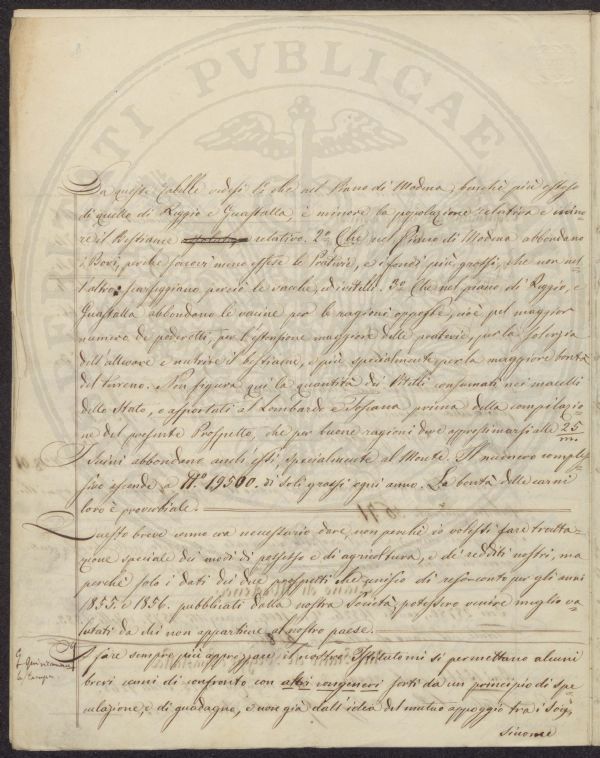 UTILITATI PVBLICAE
Da queste Tabelle vedesi 1º che nel Piano di Modena, benchè più esteso
di quello di Reggio e Guastalla, è minore la popolazione relativa e mino=
re il Bestiame relativo. 2º Che nel Piano di Modena abbondano
i Bovi, perchè sonovi meno estese le Praterie, e i fondi più grossi, che non nel=
l'altro; scarseggiano perciò le vacche, ed i vitelli. 3º Che nel piano di Reggio, e
Guastalla abbondano le vaccine per le ragioni opposte, cioè pel maggior
numero de' poderetti, per l'estensione maggiore delle praterie, per la solerzia
dell'allevare e nutrire il bestiame, e più specialmente per la maggiore bontà
del terreno. Non figura qui la quantità dei Vitelli consumati nei macelli
dello Stato, o asportati al Lombardo e Toscana, prima della compilazio=
ne del presente Prospetto, che per buone ragioni deve approssimarsi alle 25
m
I Suini abbondano anch'essi, specialmente al Monte. Il numero comples=
sivo ascende a Nº 19500. di soli grossi ogni anno. La bontà delle carni
loro è proverbiale.
Questo breve cenno era necessario dare, non perchè io volessi fare tratta=
zione speciale dei modi di possesso e di agricoltura, e de' redditi nostri, ma
perchè solo i dati dei due prospetti che unisco di resoconto per gli anni
1855. e 1856. pubblicati dalla nostra Società, potessero venire meglio va=
lutati da chi non appartiene al nostro paese.
A fare sempre più apprezzare il nostro Istituto mi si permettano alcuni
brevi cenni di confronto con altri congeneri sorti da un principio di spe=
culazione, e di guadagno, e non già dall'idea del mutuo appoggio tra i Soci,
siccome